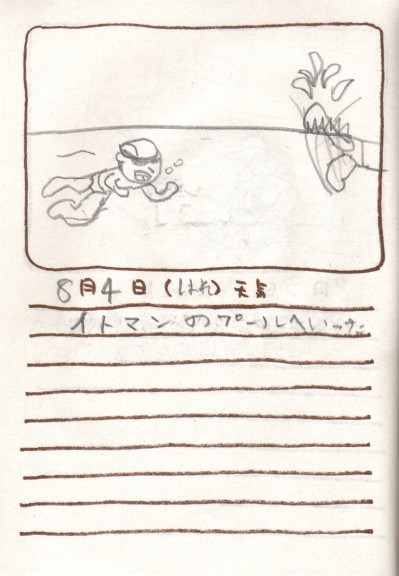 8月4日(はれ)天気
イトマンのプールへいった